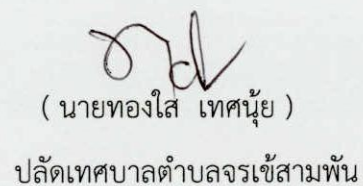 ( นายทองใส เทศนุ้ย )
ปลัดเทศบาลตำบลจรเข้สามพัน